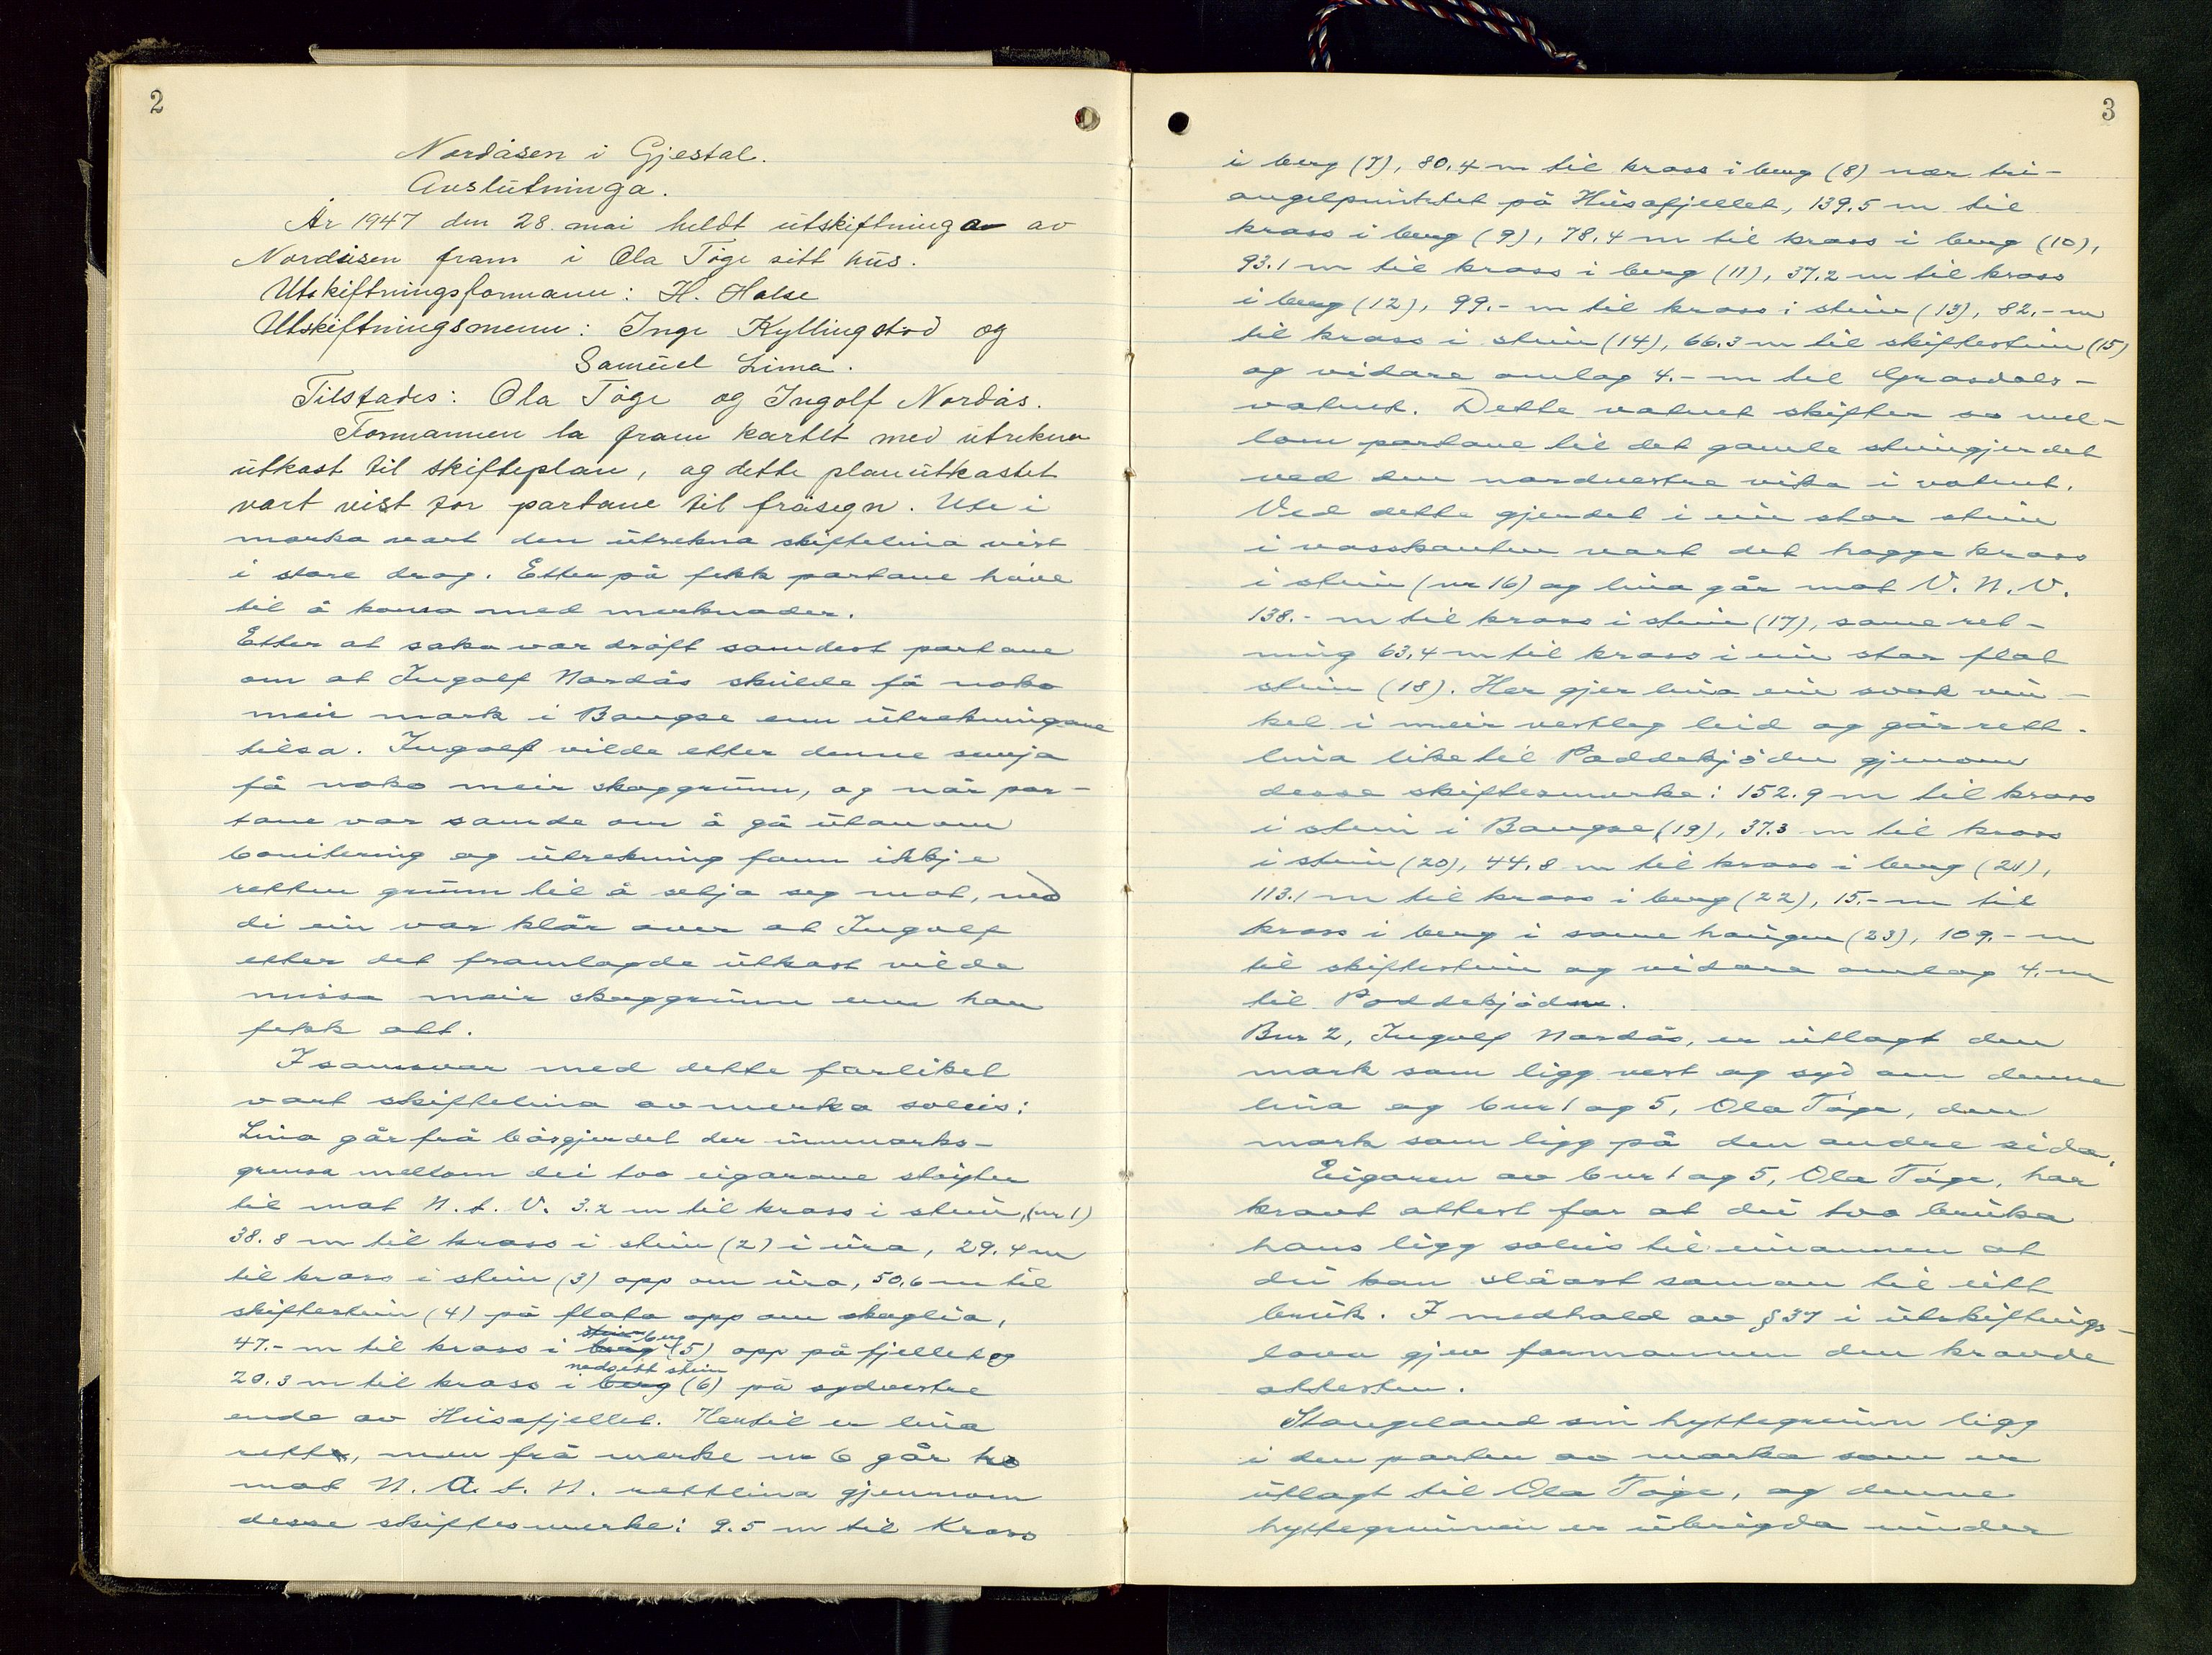 2
Nordåsen i Gjestal.
Avslutninga.
År 1947 den 28. mai heldt utskiftninga av
Nordåsen fram i Ola Töge sitt hus.
Utskiftningsformann: H. Halse
Utskiftningsmenn: Inge Kyllingstad og
Samuel Lima.
Tilstades: Ola Töge og Ingolf Nordås.
Formannen la fram kartet med utrekna
utkast til skifteplan, og dette planutkastet
vart vist for partane til fråsegn. Ute i
marka vart den utrekna skiftelina vist
i store drag. Etterpå fekk partane høve
til å koma med merknader.
Etter at saka var dröft samdest partane
om at Ingolf Nordås skulde få noko
meir mark i Baugse enn utrekningane
tilsa. Ingolf vilde etter denne semja
få noko meir skoggrunn, og når par-
tane var samde om å gå utanom
bonitering og utrekning fann ikkje
retten grunn til å setja seg mot, med
di ein var klår over at Ingolf
etter det framlagde utkast vilde
missa meir skoggrunn enn han
fekk att.
I samsvar med dette forliket
vart skiftelina avmerka soleis:
Lina går frå bösgjerdet der innmarks-
grensa mellom dei too eigarane støyter
til mot N. t. V. 3.2 m til kross i stein, (nr 1)
38.8 m til kross i stein (2) i ura, 29.4 m
til kross i stein (3) opp om ura, 50.6 m til
skiftestein (4) på flata opp om skoglia,
47.- m til kross i berg (5) opp på fjellet og
20.3 m til kross i nedsett stein (6) på sydvestre
ende av Husafjellet. Hertil er lina
rett, men frå merke nr 6 går ho
mot N. A. t. N. rettlina gjennom
desse skiftesmerke: 9.5 m til Kross
3
i berg (7), 80.4 m til kross i berg (8) nær tri-
angelpunktet på Husafjellet, 139.5 m til
kross i berg (9), 78.4 m til kross i berg (10),
93.1 m til kross i berg (11), 37.2 m til kross
i berg (12), 99.- m til kross i stein (13), 82.- m
til kross i stein (14), 66.3 m til skiftestein (15)
og vidare omlag 4.- m til Grasdals-
vatnet. Dette vatnet skifter so mel-
lom partane til det gamle steingjerdet
ved den nordvestre vika i vatnet.
Ved dette gjerdet i ein stor stein
i vasskanten vart det hogge kross
i stein (nr 16) og lina går mot V. N. V.
138.- m til kross i stein (17), same ret-
ning 63.4 m til kross i ein stor flat
stein (18). Her gjer lina ein svak vin-
kel i meir vestleg leid og går rett-
lina like til Paddekjödn gjenom
desse skiftesmerke: 152.9 m til kross
i stein i Baugse (19), 37.3 m til kross
i stein (20), 44.8 m til kross i berg (21),
113.1 m til kross i berg (22), 15.- m til
kross i berg i same haugen (23), 109.- m
til skiftestein og vidare omlag 4. m
til Paddekjödn.
Bnr 2, Ingolf Nordås, er utlagt den
mark som ligg vest og syd om denne
lina og bnr 1 og 5, Ola Töge, den
mark som ligg på den andre sida.
Eigaren av bnr 1 og 5, Ola Töge, har
kravt attest for at dei tvo bruka
hans ligg soleis til einannan at
dei kan slåast saman til eitt
bruk. I medhald av § 37 i utskiftnings-
lova gjev formannen den kravde
attesten.
Stangeland sin hyttegrunn ligg
i den parten av marka som er
utlagt til Ola Töge, og denne
hyttegrunnen er übrigda under